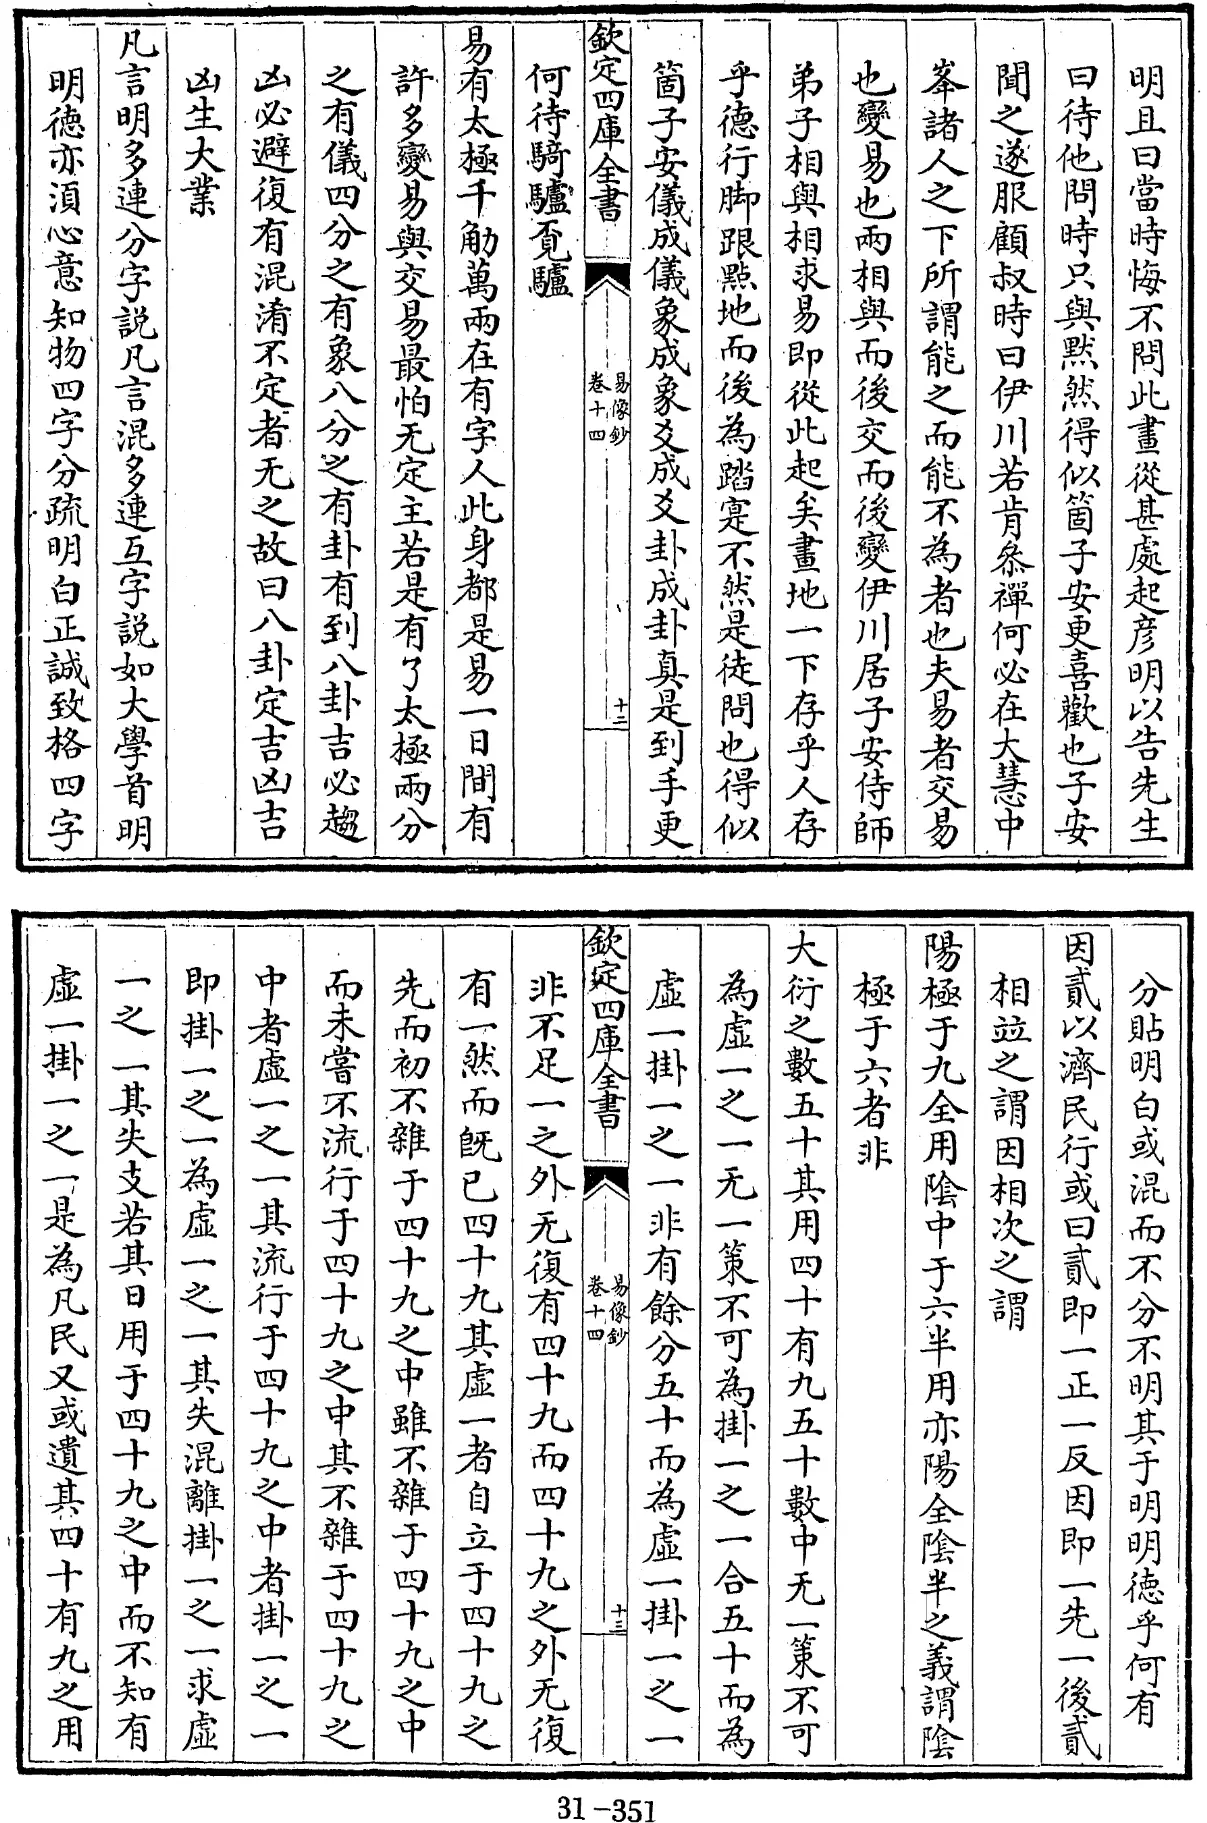 明且曰當時悔不問此畫從甚處起彦明以告先生
曰待他問時只與黙然得似箇子安更喜歡也子安
聞之遂服顧叔時曰伊川若肯叅禪何必在大慧中
峯諸人之下所謂能之而能不為者也夫易者交易
也變易也兩相與而後交而後變伊川居子安侍師
弟子相與相求易即從此起矣畫地一下存乎人存
乎德行脚跟㸃地而後為踏寔不然是徒問也得似
箇子安儀成儀象成象爻成爻卦成卦真是到手更
欽定四庫全書
易像鈔
卷十四
十二
何待騎驢覔驢
易有太極千觔萬兩在有字人此身都是易一日間有
許多變易與交易最怕无定主若是有了太極兩分
之有儀四分之有象八分之有卦有到八卦吉必趨
凶必避復有混淆不定者无之故曰八卦定吉凶吉
凶生大業
凡言明多連分字説凡言混多連互字説如大學首明
明德亦湏心意知物四字分疏明白正誠致格四字
分貼明白或混而不分不明其于明明德乎何有
因貳以濟民行或曰貳即一正一反因即一先一後貳
相竝之謂因相次之謂
陽極于九全用陰中于六半用亦陽全陰半之義謂陰
極于六者非
大衍之數五十其用四十有九五十數中无一策不可
為虛一之一无一策不可為掛一之一合五十而為
虛一掛一之一非有餘分五十而為虛一掛一之一
欽定四庫全書
易像鈔
卷十四
十三
非不足一之外无復有四十九而四十九之外无復
有一然而既已四十九其虛一者自立于四十九之
先而初不雜于四十九之中雖不雜于四十九之中
而未嘗不流行于四十九之中其不雜于四十九之
中者虛一之一其流行于四十九之中者掛一之一
即掛一之一為虛一之一其失混離掛一之一求虛
一之一其失支若其日用于四十九之中而不知有
虛一掛一之一是為凡民又或遺其四十有九之用
31-351